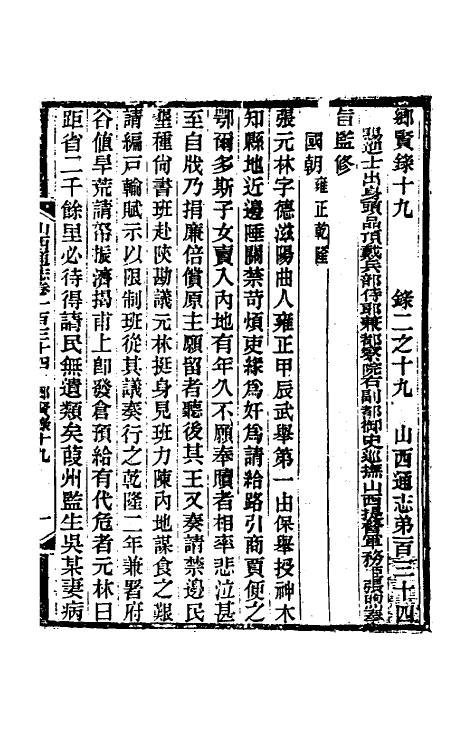 鄉賢錄十九　　　錄二之十九　　山西通志弟一百三十四
賜進士出身頭品頂戴兵部侍郎兼都察院右副都御史巡撫山西提督軍務
旨監修
國朝雍正乾隆
張元林字德滋陽曲人雍正甲辰武舉第一由保舉授神木
知縣地近邊陲關禁苛煩吏緣爲奸爲請給路引商賈便之
鄂爾多斯子女賣入內地有年久不願奉贖者相率悲泣甚
至自戕乃捐廉倍償原主願留者聽後其王又奏請禁邊民
墾種尙書班赴陝勘議元林挺身見班力陳內地謀食之艱
請編戸輸賦示以限制班從其議奏行之乾隆二年兼署府
谷値旱荒請帑振濟揭甫上卽發倉預給有代危者元林曰
距省二千餘里必待得請民無遺類矣葭州監生吳某妻病
山西通志卷一百三十四　鄉賢錄十九　一